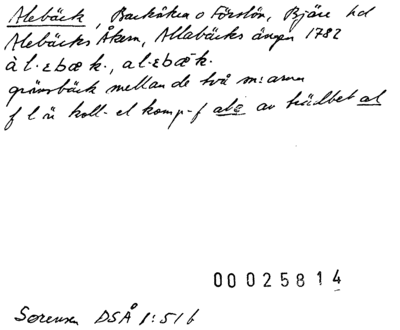 Alebäck, Backåkra o Förslöv, Bjäre hd
Alebäcks Åkern, Allabäcks ängen 1782
à l·εbæk·, al·εbæ̀k·
gränsbäck mellan de två m:arna
f l ä koll- el komp-f ale av trädbet al
00025814
Sørensen DSÅ 1:51b